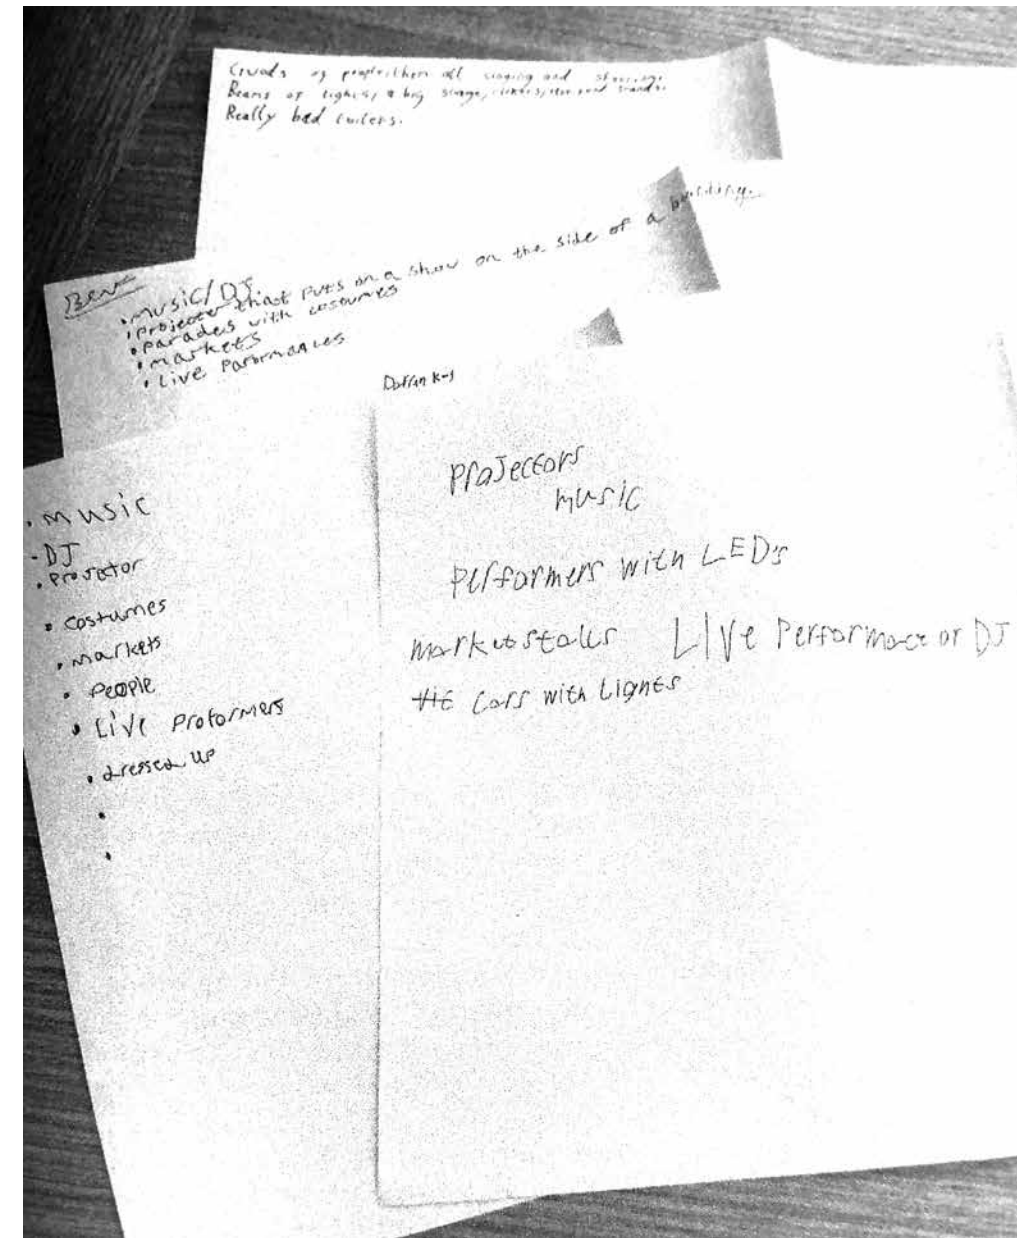 of people them all singing and
Beams of lights, a big stage, and
Really bad toilets.
Ben
• music/DJ
• projector that puts on a show on the side of a building.
• parades with costumes
• markets
• Live Parormances
• music
- DJ
• projetor
• costumes
• markets
• People
• Live Proformers
• dressed up
•
•
Projectors
music
Performers with LED's
market stalls Live Performace or DJ
Cars with Lights